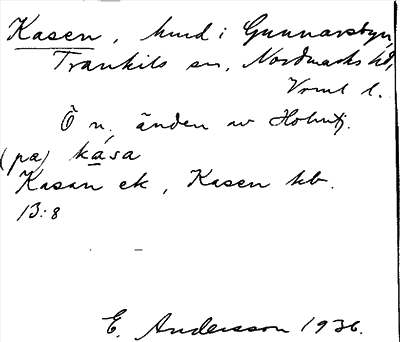 Kasen, hmd i Gunnarsbyn,
Trankils sn, Nordmarks hd,
Vrml l.
Ö n. änden av Holmtj.
(pa) kåsa
Kasan ek, Kasen kb.
13:8
E. Andersson 1936.